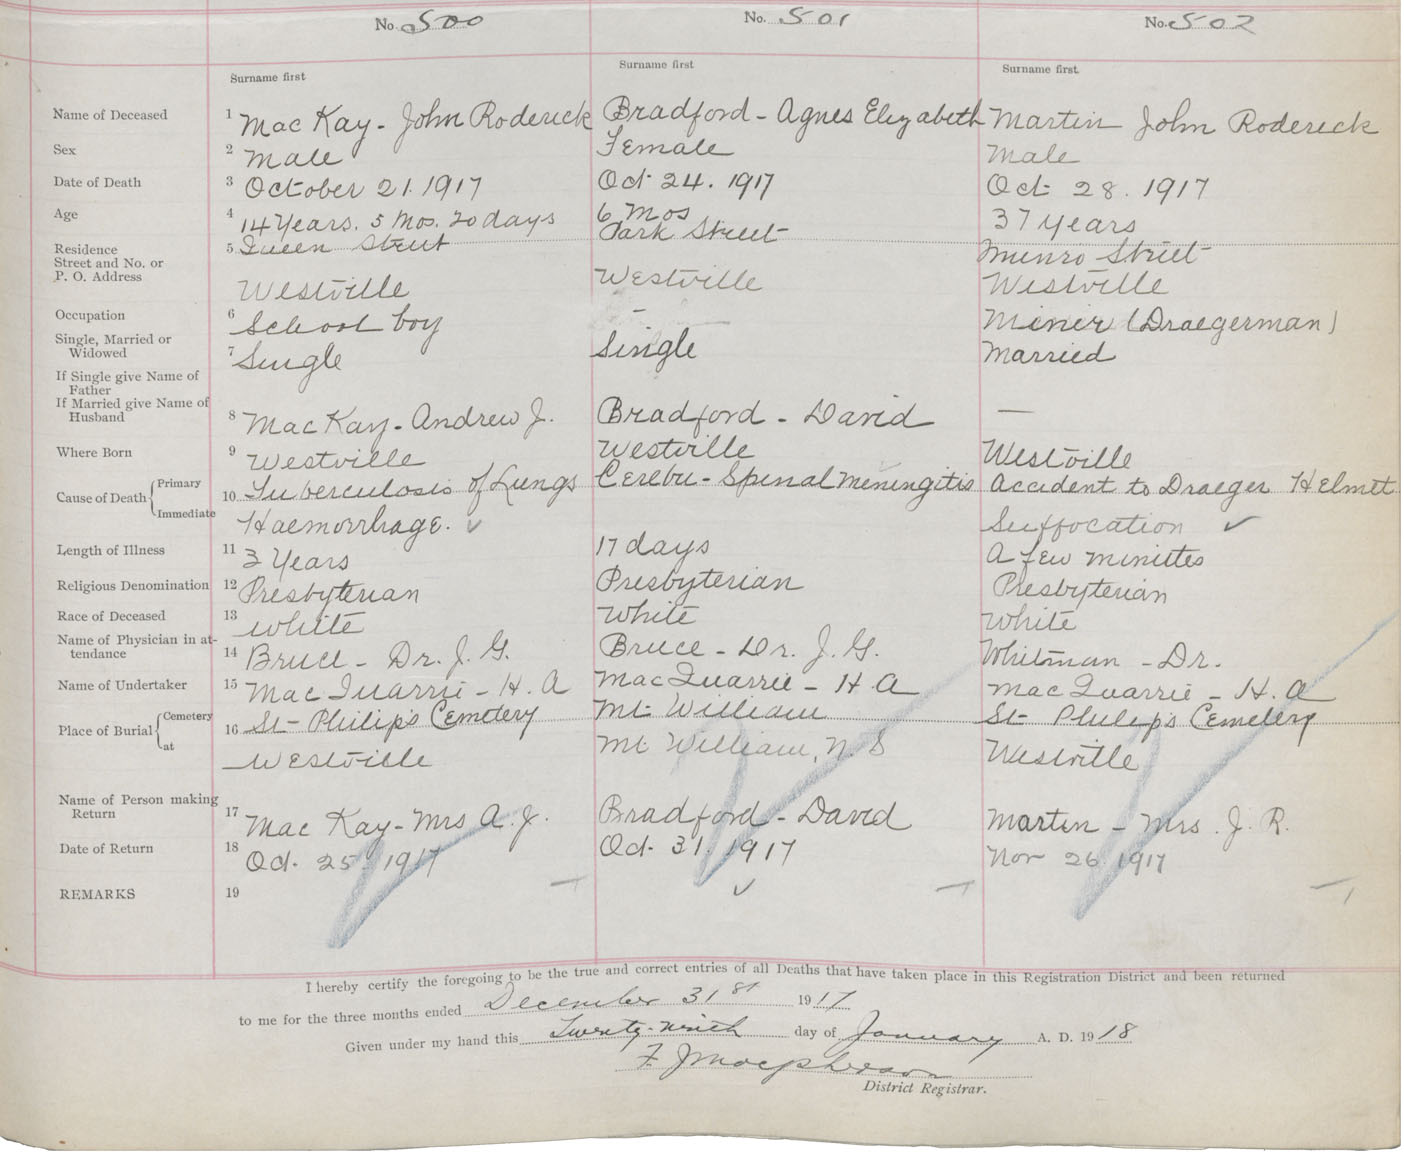 No. 500 No. 501 No. 502
Surname first Surname first Surname first
Name of Deceased 1 MacKay - John Roderick Bradford - Agnes Elizabeth Martin John Roderick
Sex 2 Male Female Male
Date of Death 3 October 21. 1917 Oct 24. 1917 Oct 28. 1917
Age 4 14 Years. 5 Mos. 20 days 6 Mos 37 Years
Residence 5 Queen Street Park Street Munro Street
Street and No. or
P. O. Address Westville Westville Westville
Occupation 6 School boy - Miner (Draegerman)
Single, Married or
Widowed 7 Single Single Married
If Single give Name of
Father
If Married give Name of
Husband 8 MacKay - Andrew J. Bradford - David —
Where Born 9 Westville Westville Westville
Cause of Death { Primary 10 Tuberculosis of Lungs Cerebro - Spinal Meningitis Accident to Draeger Helmet
Immediate Haemorrhage. ✓ Suffocation ✓
Length of Illness 11 3 Years 17 days A few minutes
Religious Denomination 12 Presbyterian Presbyterian Presbyterian
Race of Deceased 13 White White White
Name of Physician in at-
tendance 14 Bruce - Dr. J. G. Bruce - Dr. J. G. Whitman - Dr.
Name of Undertaker 15 MacQuarrie - H. A MacQuarrie - H A MacQuarrie - H. A
Place of Burial { Cemetery 16 St Philip's Cemetery Mt William St Philip's Cemetery
at Westville Mt William, N. S Westville
Name of Person making
Return 17 MacKay - Mrs A. J. Bradford - David Martin - Mrs. J. R.
Date of Return 18 Oct. 25 1917 Oct. 31. 1917 Nov 26. 1917
REMARKS 19 ✓
I hereby certify the foregoing to be the true and correct entries of all Deaths that have taken place in this Registration District and been returned
to me for the three months ended December 31st 1917
Given under my hand this Twenty-ninth day of January A. D. 1918
F. J Macpherson
District Registrar.